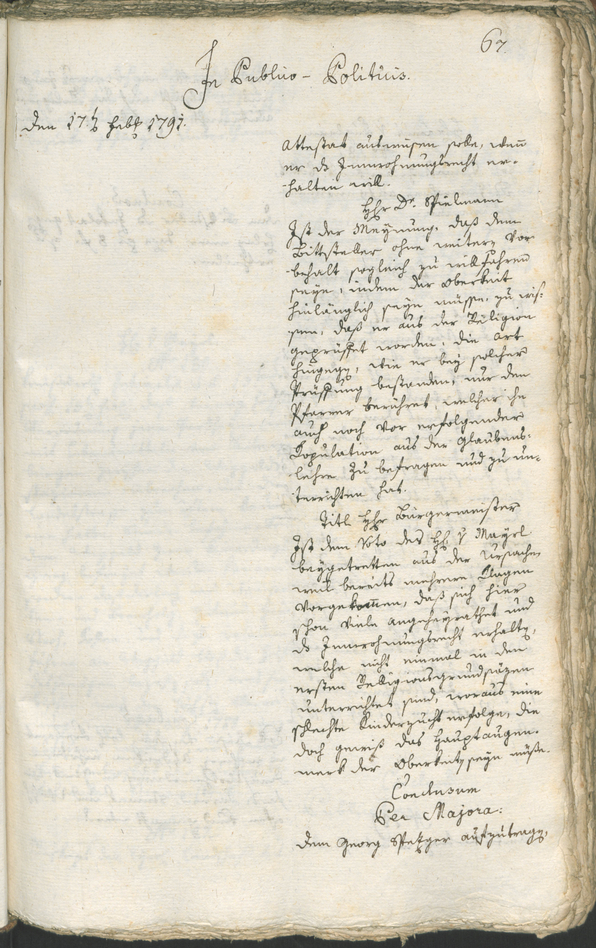 67
In Publico - Politicis.
den 17t Febr 1791.
Attestat aufweisen solle, wenn
er ds Innwohnungsrecht er-
halten will.
Hhr Dr. Spielmann
Ist der Meynung, daß dem
Bittsteller ohne weitern Vor
behalt sogleich zu willfahren
seye, indem der Oberkeit
hinlänglich seyn müsse, zu wis-
sen, daß er aus der Religion
geprüfet worden; die Art
hingegen, wie er bey solcher
Prüffung bestanden, nur den
Pfarrer berühret, welcher ihn
auch noch vor erfolgender
Copulation aus der Glaubens-
lehre zu befragen und zu un-
terrichten hat.
Titl Hhr Bürgermeister
Ist dem Voto des Hh v Mayrl
beygetretten aus der Ursache,
weil bereits mehrere Klagen
vorgekommen, daß sich hier
schon viele angeheyrathet und
ds Innwohnungsrecht erhalten,
welche nicht einmal in den
ersten Religionsgrundsäzen
unterrichtet sind, woraus eine
schlechte Kinderzucht erfolge, die
doch gewiß das Hauptaugen-
merk der Oberkeit seyn müße.
Conclusum
Per Majora:
dem Georg Spetzger aufzutragen,